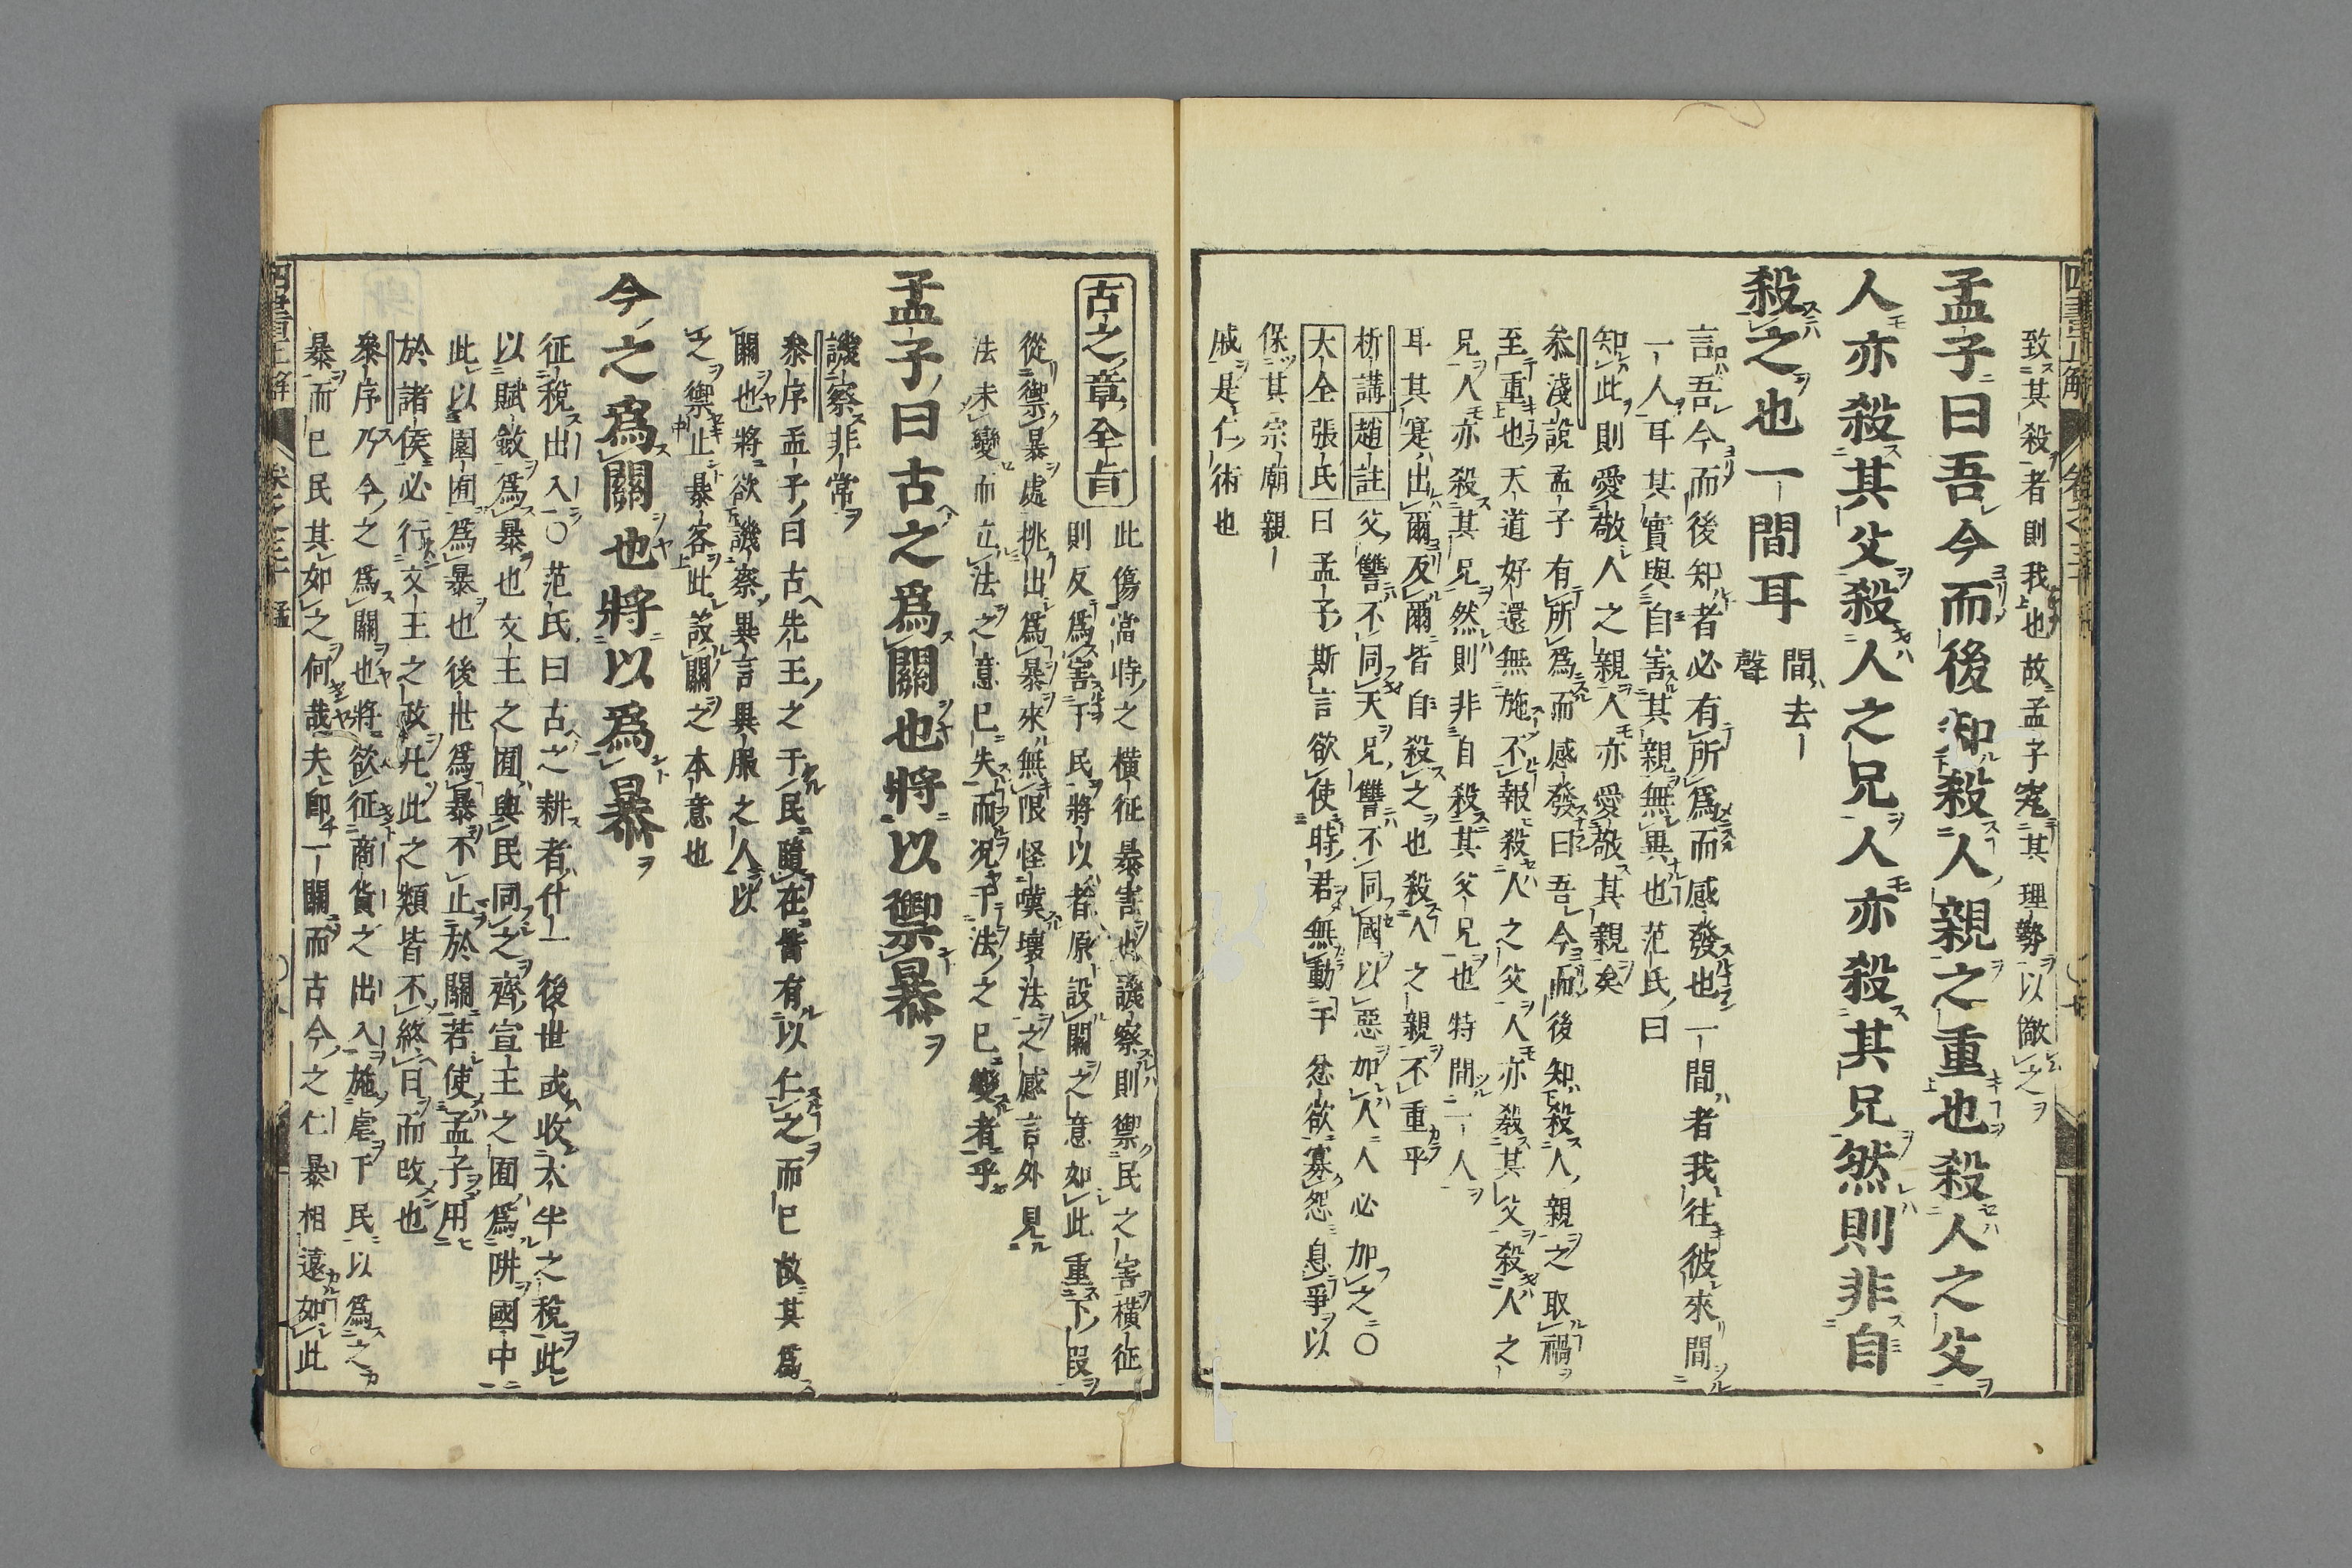 致其殺者則我也故孟子窕其理勢以儆之
孟子曰吾今而後知殺人親之重也殺人之父
人亦殺其父殺人之兄人亦殺其兄然則非自
殺之也一間耳
間去
聲
言吾今而後知者必有所爲而感發也一間者我往彼來間
一人耳其實與自害其親無異也范氏曰
知此則愛敬人之親人亦愛敬其親矣
叅淺說孟子有所爲而感發曰吾今而後知殺人親之取禍
至重也天道好還無施不報殺人之父人亦殺其父殺人之
兄人亦殺其兄然則非自殺其父兄也特間一人
耳其寔出爾反爾皆自殺之也殺人之親不重乎
析講趙註父讐不同天兄讐不同國以惡加人人必加之〇
大全張氏曰孟子斯言欲使時君無動干忿欲塞怨息爭以
保其宗廟親
戚是仁術也
古之章全旨
此傷當時之橫征暴害也譏察則禦民之害橫征
則反爲害于民將以者原設關之意如此重下叚
從禦暴處挑出爲暴來無限怪嘆壞法之感言外見
法未變而立法之意已失而況于法之已變者乎
孟子曰古之爲關也將以禦暴
譏察非常
叅序孟子曰古先王之于民隨在皆有以仁之而已故其爲
關也將欲譏察異言異服之人以
之禦止暴客此設關之本意也
今之爲關也將以爲暴
征稅出入〇范氏曰古之耕者什一後世或收太半之稅此
以賦斂爲暴也文王之囿與民同之齊宣王之囿爲阱國中
此以園囿爲暴也後世爲暴不止於關若使孟子用
於諸侯必行文王之政凡此之類皆不終日而改也
叅序乃今之爲關也將欲征商貨之出入施虐下民以爲之
暴而已民其如之何哉夫卽一關而古今之仁暴相遠如此